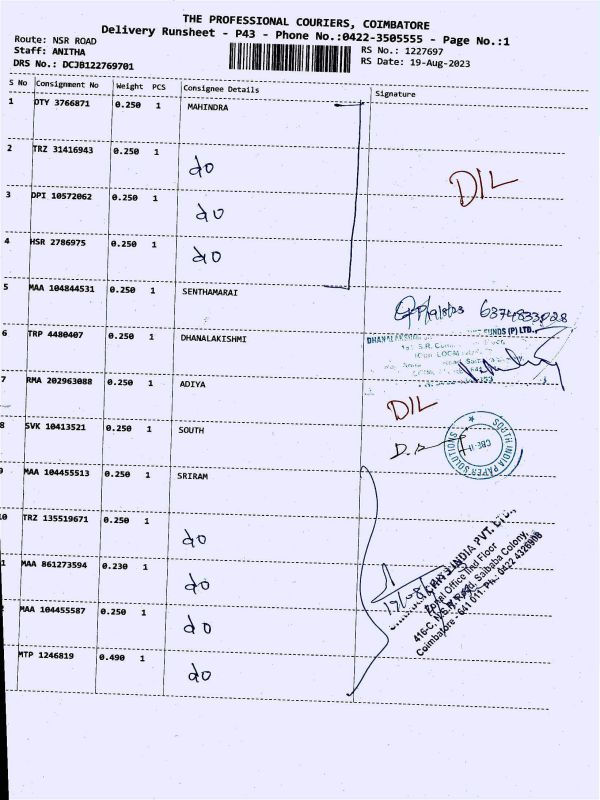 THE PROFESSIONAL COURIERS, COIMBATORE
Delivery Runsheet - P43 - Phone No.:0422-3505555 - Page No.:1
Route: NSR ROAD
RS No.: 1227697
Staff: ANITHA
RS Date: 19-Aug-2023
DRS No.: DCJB122769701
S No Consignment No Weight PCS Consignee Details Signature
1 DTY 3766871 0.250 1 MAHINDRA
2 TRZ 31416943 0.250 1 do
DIL
3 DPI 10572062 0.250 1 do
4 HSR 2786975 0.250 1 do
5 MAA 104844531 0.250 1 SENTHAMARAI
19/8/23 6374833028
6 TRP 4480407 0.250 1 DHANALAKISHMI
FUNDS (P) LTD.,
7 RMA 202963088 0.250 1 ADIYA
DIL
8 SVK 10413521 0.250 1 SOUTH
SOUTH INDIA PAPER SOLUTIONS
CBE-11
9 MAA 104455513 0.250 1 SRIRAM
0 TRZ 135519671 0.250 1 do
1 MAA 861273594 0.230 1 do
2 MAA 104455587 0.250 1 do
MTP 1246819 0.490 1 do
INDIA PVT. LTD.,
Office IInd Floor
416-C, N.S.R. Road, Saibaba Colony,
Coimbatore - 641 011. Ph.: 0422 4326908